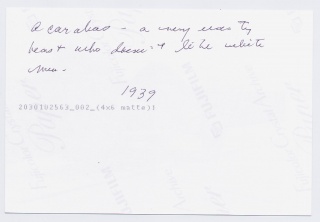 a carabao - a very nasty
beast who doesn't like white
men.
1939
2030102563_002_(4x6 matte)